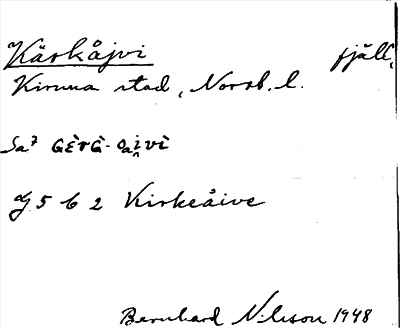 Kärkåjvi fjäll,
Kiruna stad, Norrb. l.
Sa7 GÈrG̀-oaivè
G 5 b 2 Kirkeåive
Bernhard Nilsson 1948